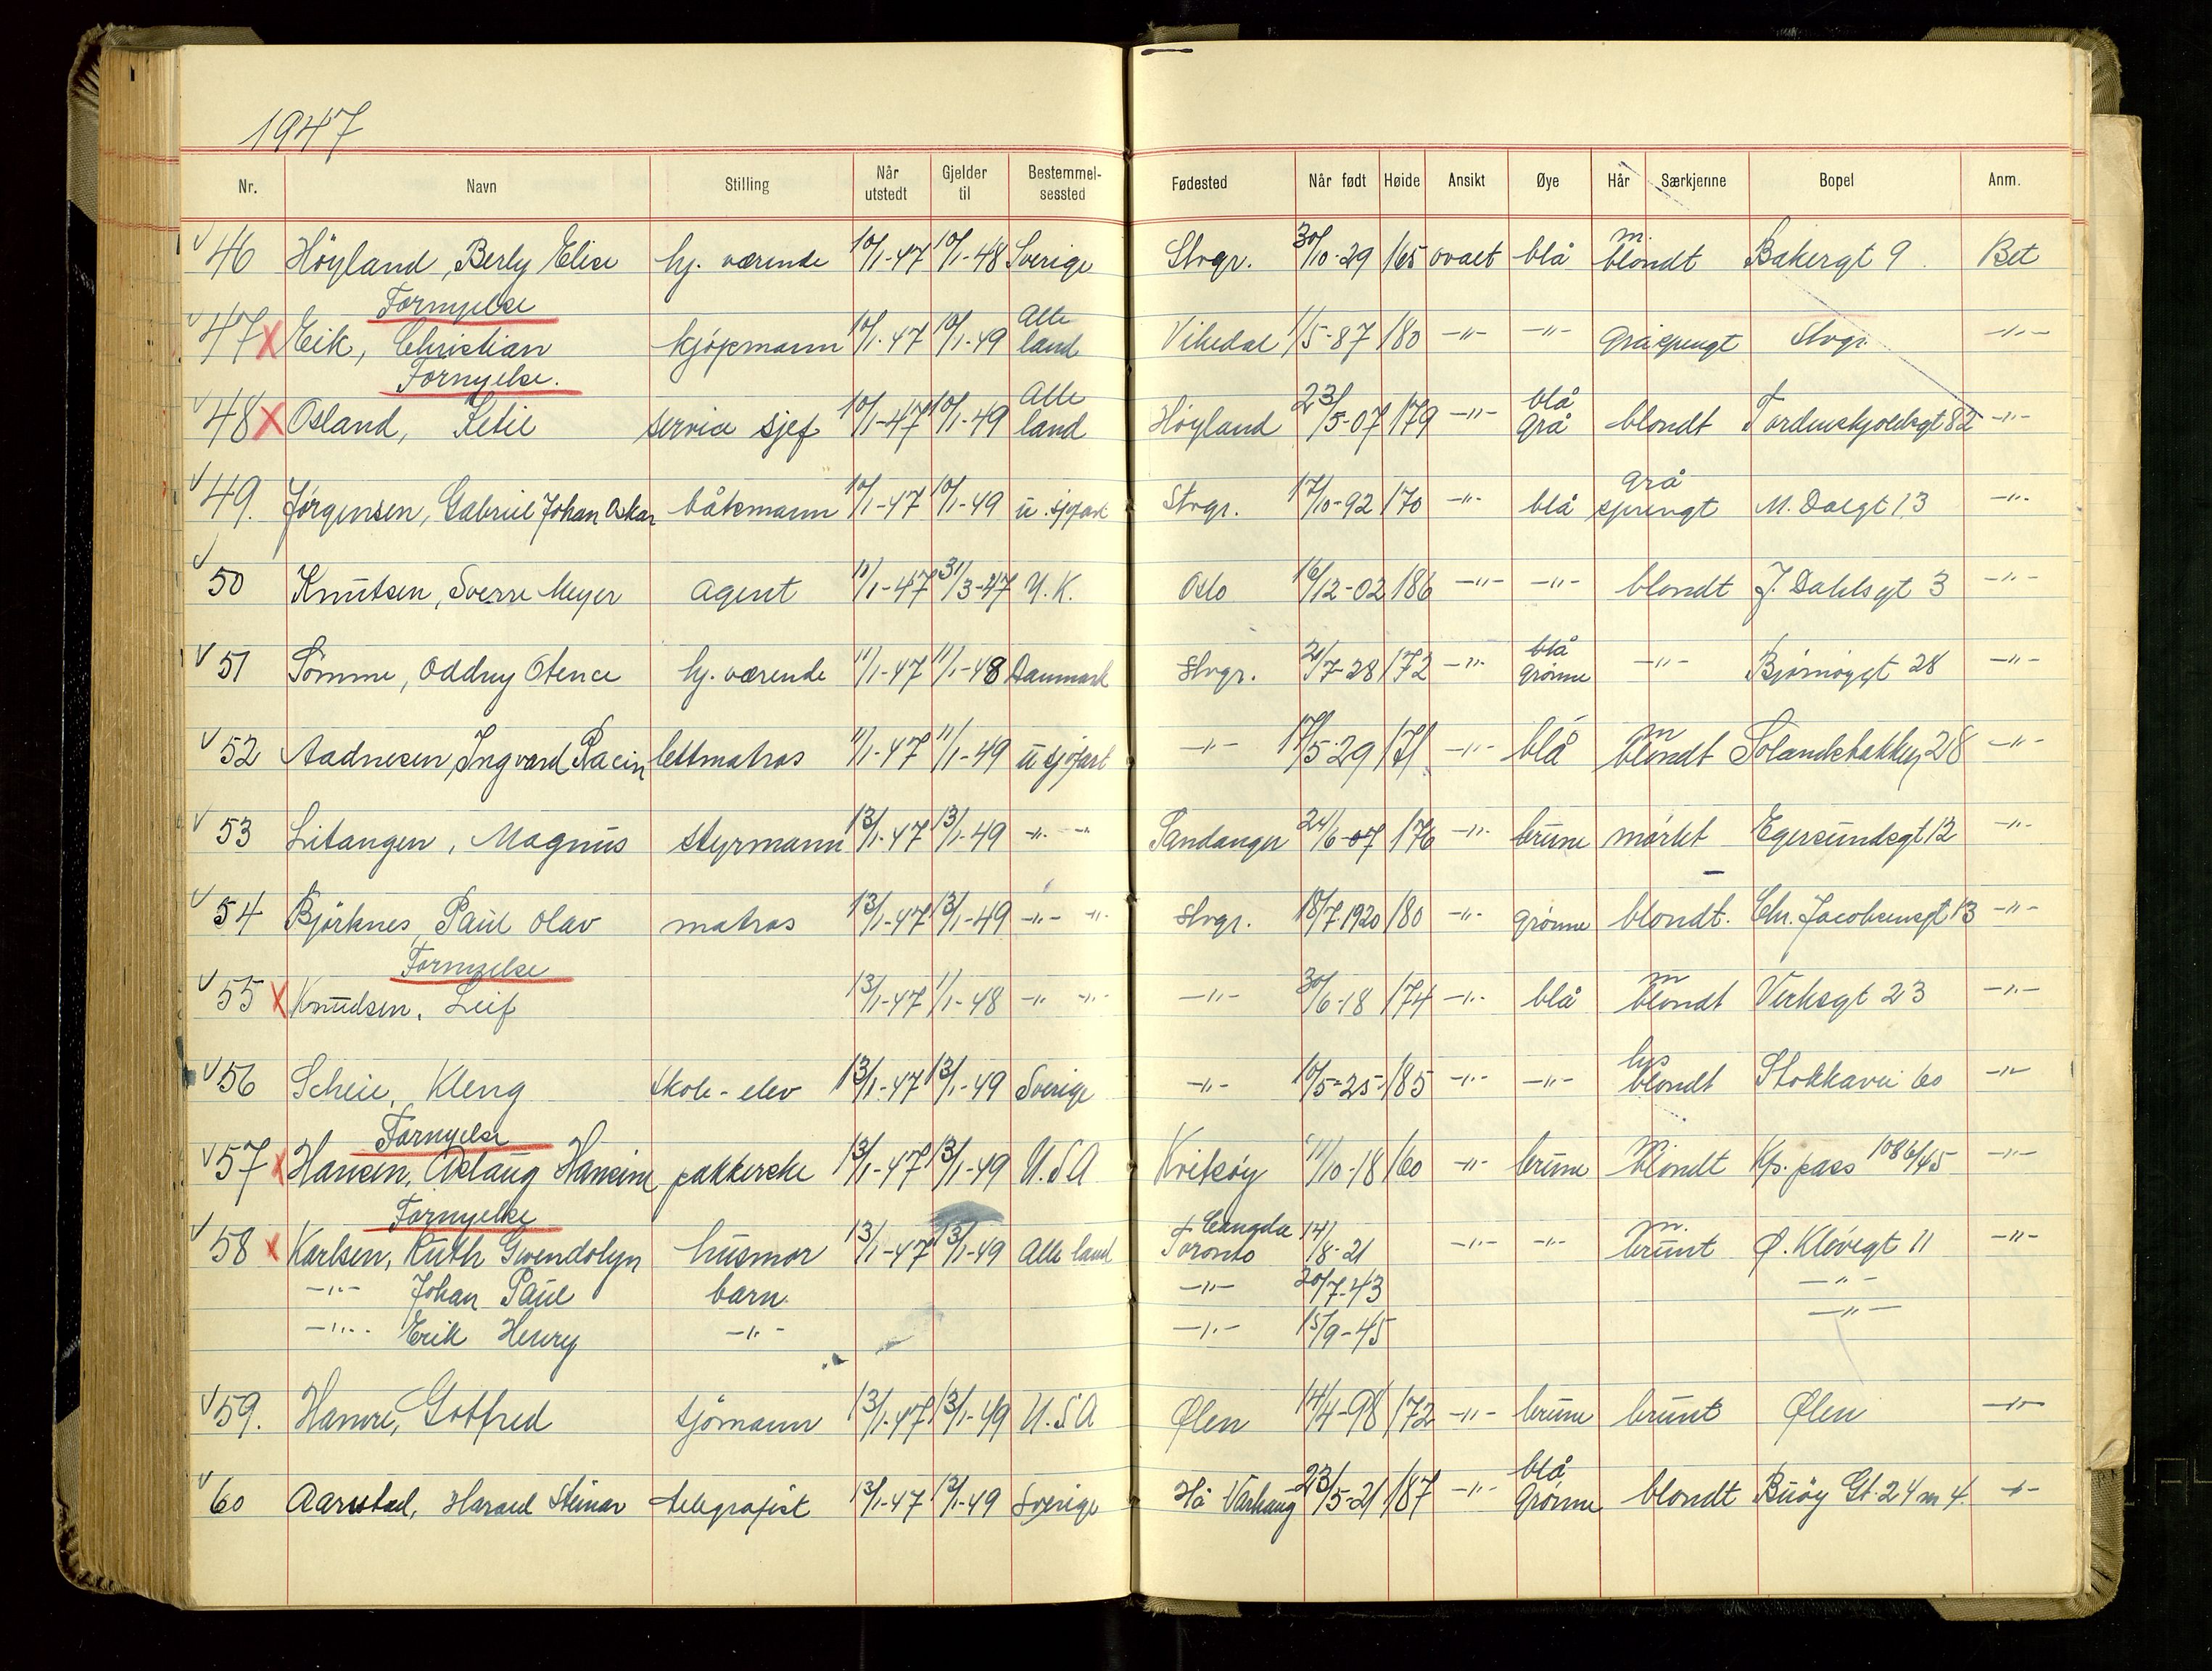 1947
Nr. Navn Stilling Når utstedt Gjelder til Bestemmelsessted Fødested Når født Høide Ansikt Øye Hår Særkjenne Bopel Anm.
46 Höyland, Berly Elise hj. værende 10/1-47 10/1-48 Sverige Stvgr. 30/10-29 165 ovalt blå m. blondt Bakergt 9. Bet
Fornyelse
47 X Eik, Christian kjøpmann 10/1-47 10/1-49 Alle land Vikedal 1/5-87 180 -"- -"- gråsprengt Stvgr. -"-
Fornyelse.
48 X Osland, Ketil service sjef 10/1-47 10/1-49 Alle land Höyland 23/5-07 179 -"- blå grå blondt Tordenskjoldsgt 82 -"-
49. Jørgensen, Gabriel Johan Oskar båtsmann 10/1-47 10/1-49 u. sjøfart Stvgr. 17/10-92 170 -"- blå grå sprengt M. Dalgt 13 -"-
50 Knutsen, Sverre Meyer agent 11/1-47 31/3-47 U.K. Oslo 16/12-02 186 -"- -"- blondt J. Dahlsgt 3 -"-
51 Sömme, Oddny Otence hj. værende 11/1-47 11/1-48 Danmark Stvgr. 21/7-28 172 -"- blå grønne -"- Bjørnøygt 28 -"-
52 Aadnesen, Ingvard Racin lettmatros 11/1-47 11/1-49 u sjøfart -"- 17/5-29 171 -"- blå m blondt Solandsbakken 28 -"-
53 Litangen, Magnus styrmann 13/1-47 13/1-49 -"- -"- Sandanger 24/6-07 176 -"- brune mørkt Egersundsgt 12 -"-
54 Björknes, Paul Olav matros 13/1-47 13/1-49 -"- -"- Stvgr. 18/7-1920 180 -"- grønne blondt. Chr. Jacobsensgt 13 -"-
Fornyelse
55 X Knudsen, Leif 13/1-47 1/1-48 -"- -"- -"- 30/6-18 174 -"- blå m blondt Verksgt 23 -"-
56 Scheie, Kleng skole-elev 13/1-47 13/1-49 Sverige -"- 10/5-25 185 -"- -"- lys blondt Stokkavei 60 -"-
Fornyelse
57 X Hansen, Aslaug Hansine pakkerske 13/1-47 13/1-49 U.S.A Kvitsøy 11/10-18 160 -"- brune m. blondt Kfr. pass 1086/45 -"-
Fornyelse
58 X Karlsen, Ruth Gwendolyn husmor 13/1-47 13/1-49 Alle land Toronto 14/8-21 -"- -"- m. brunt Ø. Kleivegt 11 -"-
-"- Johan Paul barn. -"- 20/7-43 -"-
-"- Erik Henry -"- -"- 15/9-45 -"-
59. Hamre, Gotfred sjömann 13/1-47 13/1-49 U.S.A Ølen 14/4-98 172 -"- brune brunt Ølen -"-
60 Aarrestad, Harald Steinar telegrafist 13/1-47 13/1-49 Sverige Hå Varhaug 23/5-21 187 -"- blå grønne blondt Buøy Gt. 24 nr 4. -"-